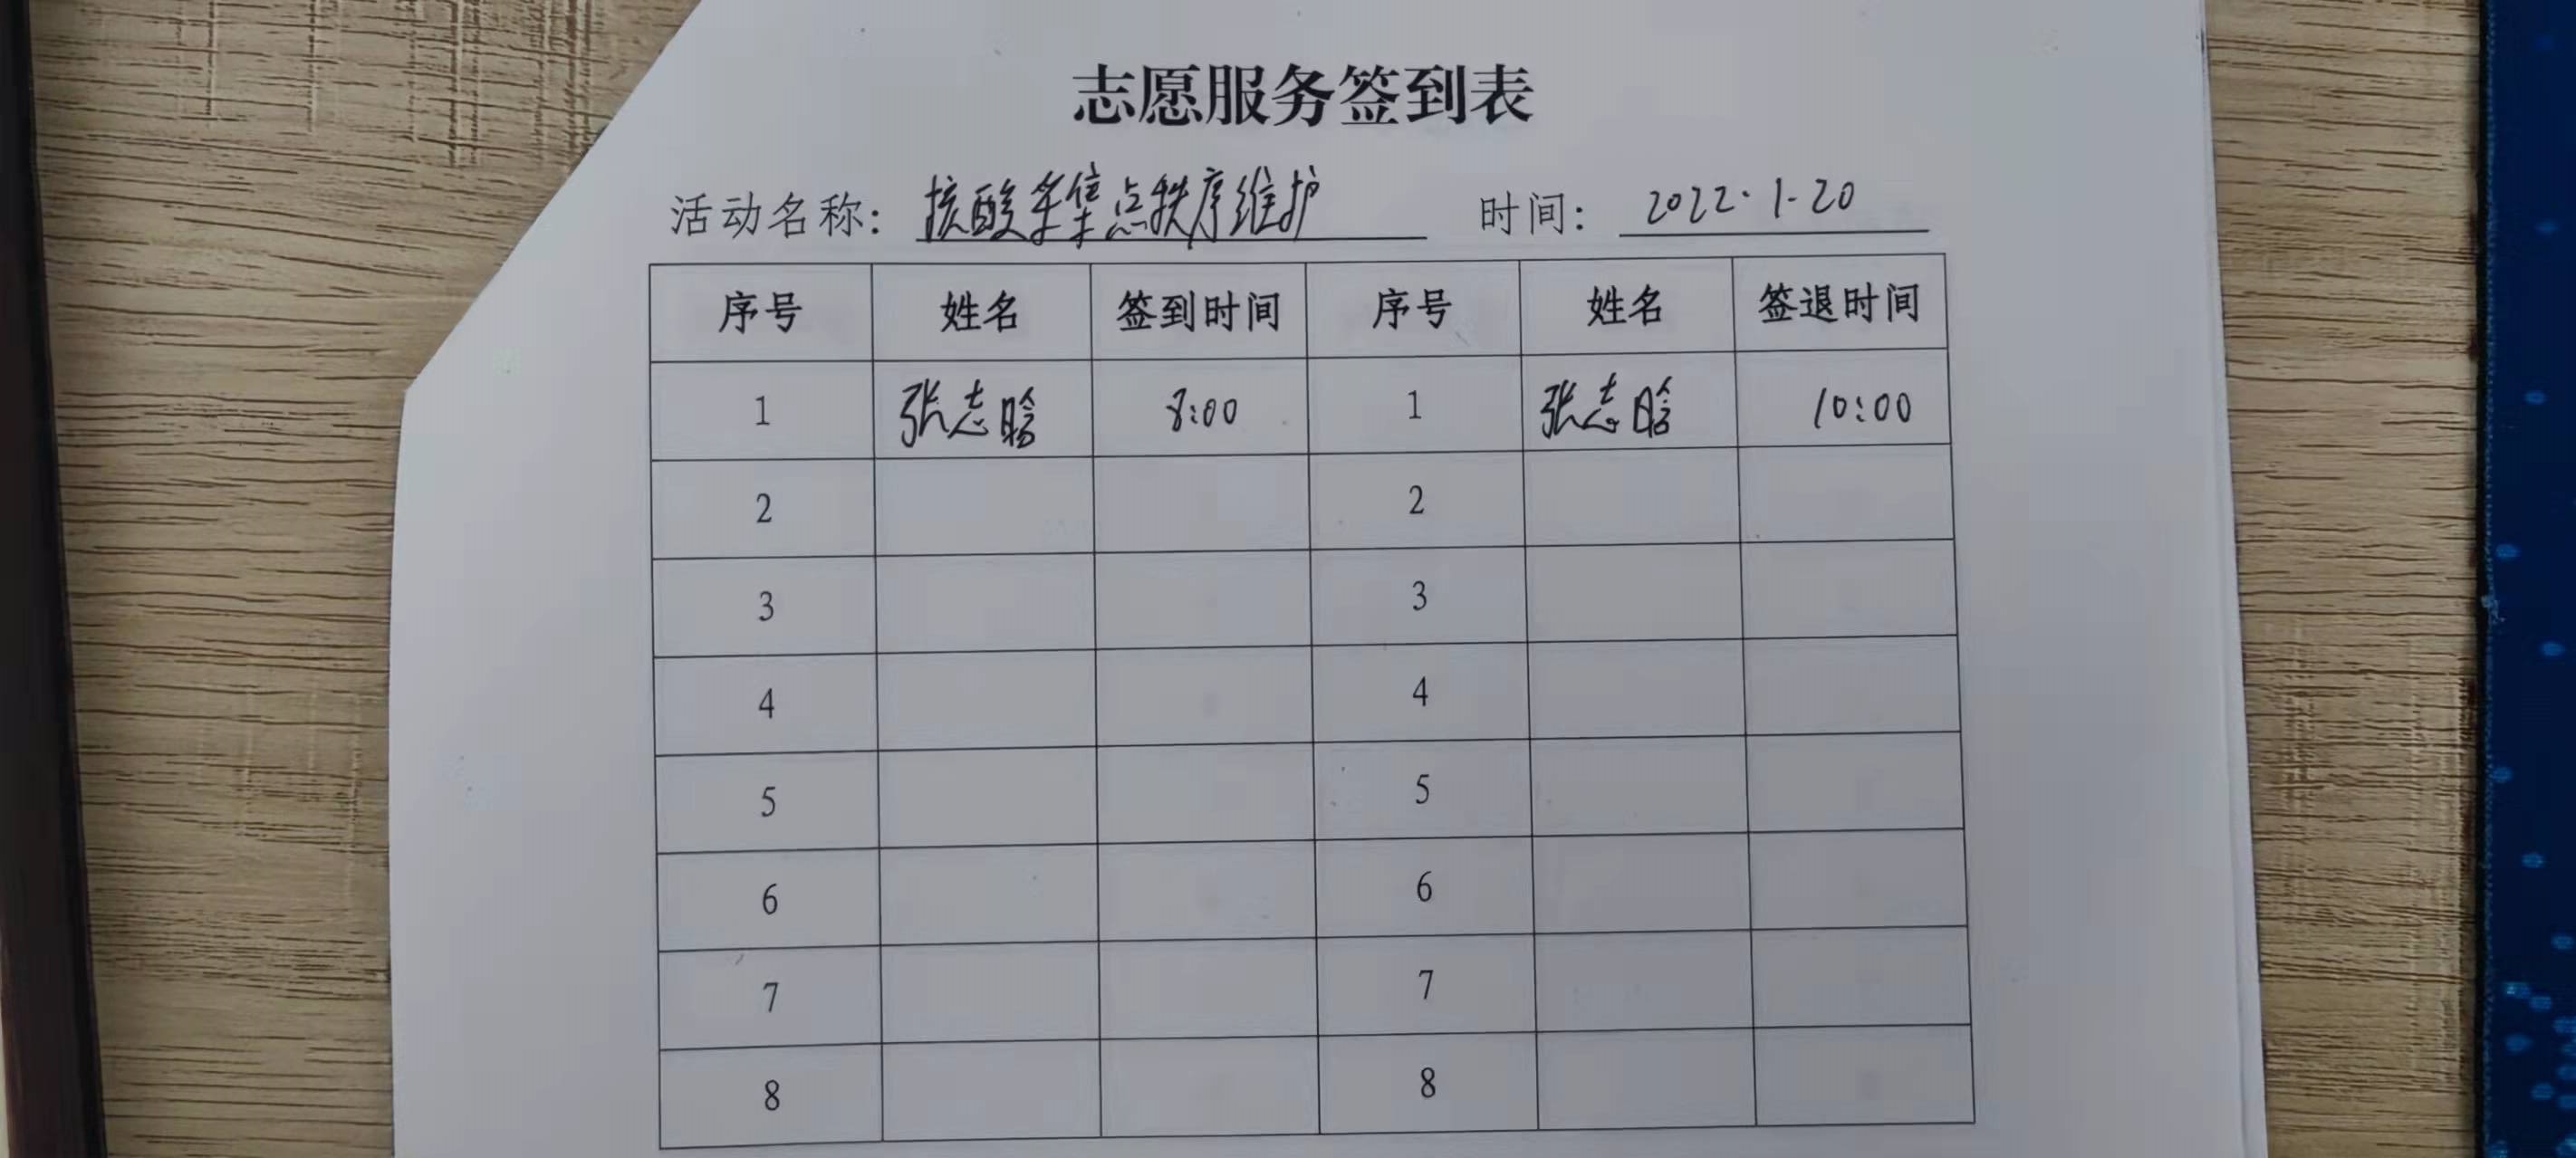 志愿服务签到表
活动名称：核酸采集点秩序维护 时间：2022.1.20
序号 姓名 签到时间 序号 姓名 签退时间
1 张志晗 8:00 1 张志晗 10:00
2 2
3 3
4 4
5 5
6 6
7 7
8 8